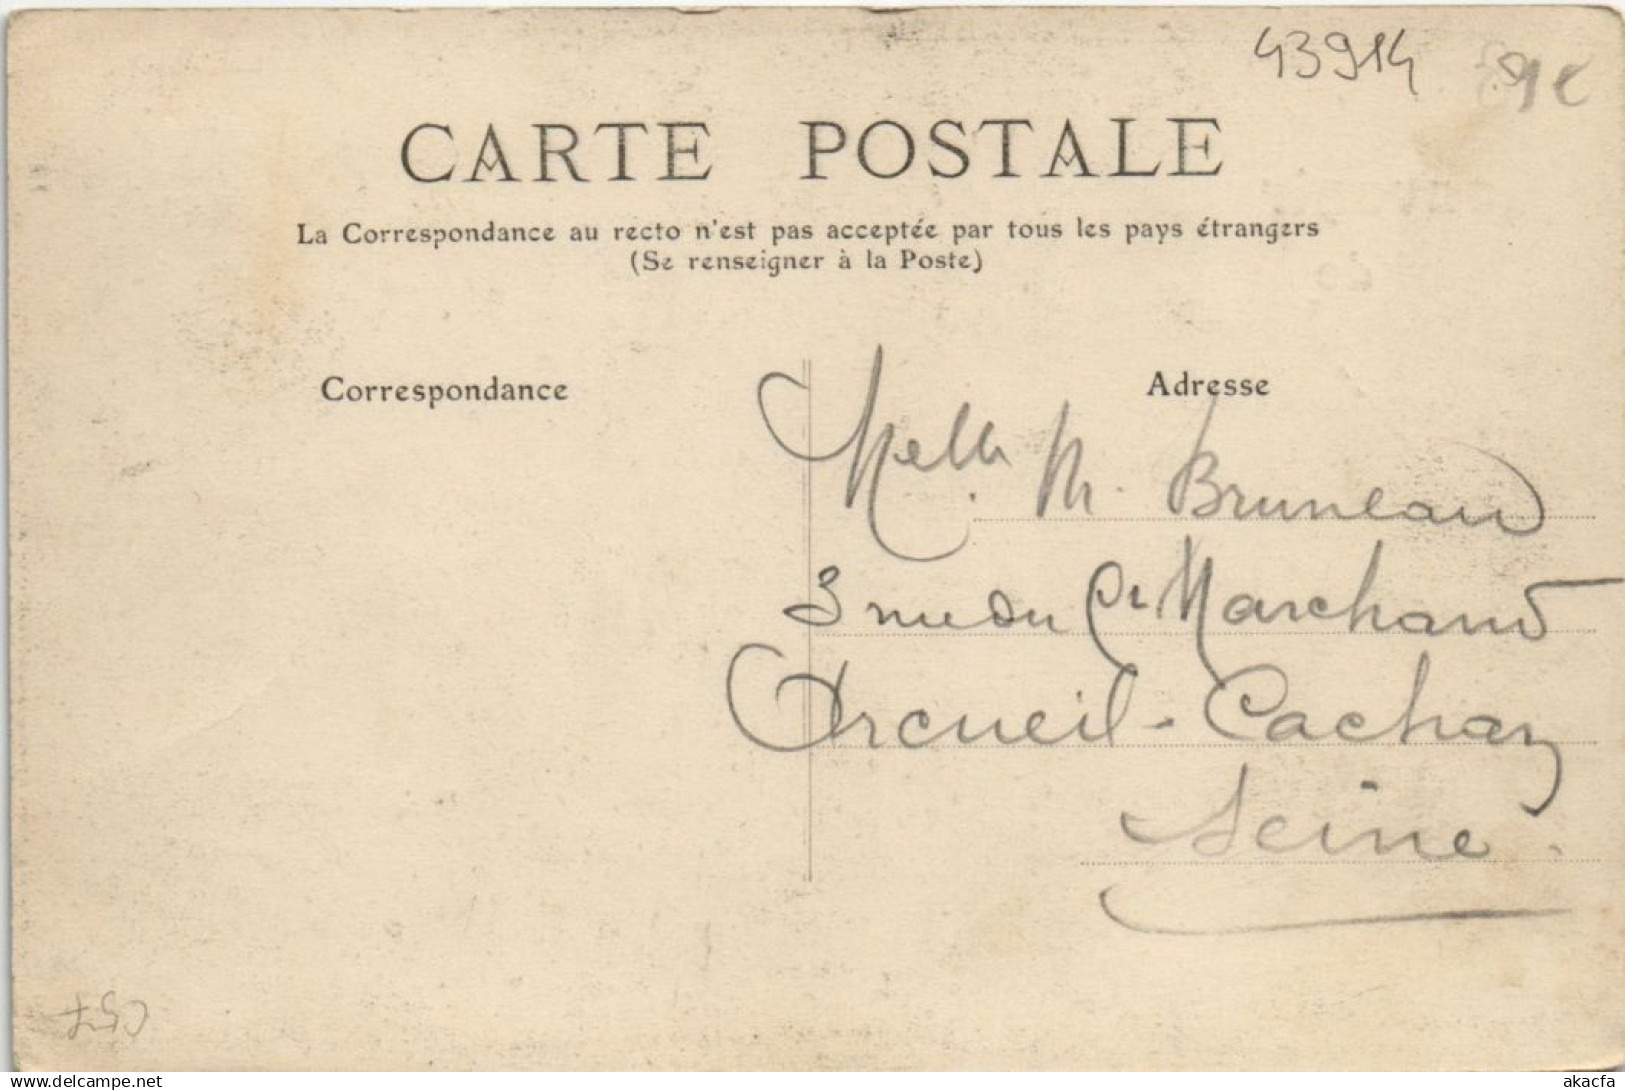 43914 91c
CARTE POSTALE
La Correspondance au recto n'est pas acceptée par tous les pays étrangers
(Se renseigner à la Poste)
Correspondance
Adresse
Melle M. Bruneau
3 rue du Ct Marchand
Arcueil-Cachan
Seine.
delcampe.net
akacfa